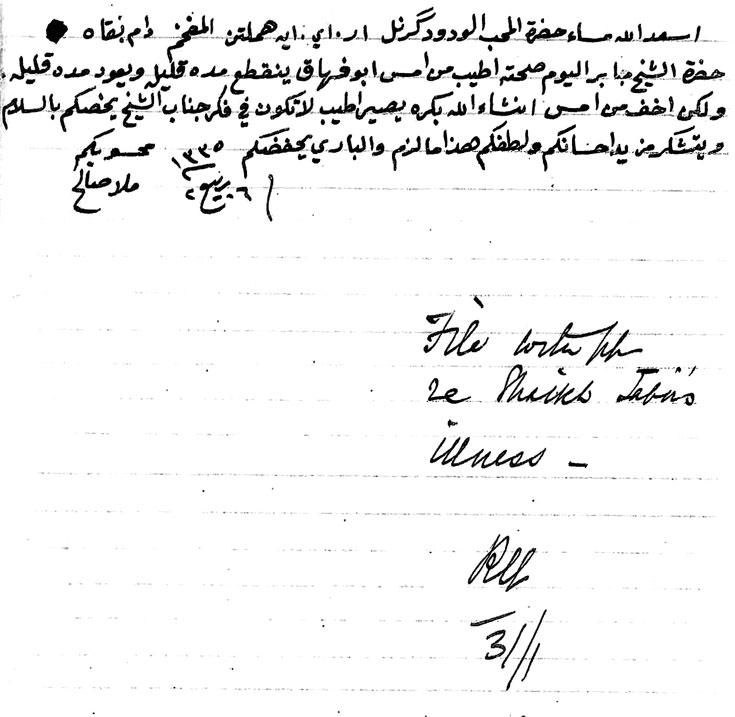 اسعد الله مساء حضرة المحب الودود گرنل ار. اي. ايه هملتن المفخم دام بقاه
حضرة الشيخ جابر اليوم صحته اطيب من امس ابو فهاق ينقطع مده قليله ويعود مده قليله
ولكن اخف من امس انشاء الله بكره يصير اطيب لا تكون في فكر جناب الشيخ يخصكم بالسلام
ويتشكر مزيد احسانكم ولطفكم هذا ما لزم والباري يحفضكم
٦ ربيع ٢ ١٣٣٥
محسوبكم
ملا صالح
File with pp
re Shaikh Jabir's
illness -
31/1